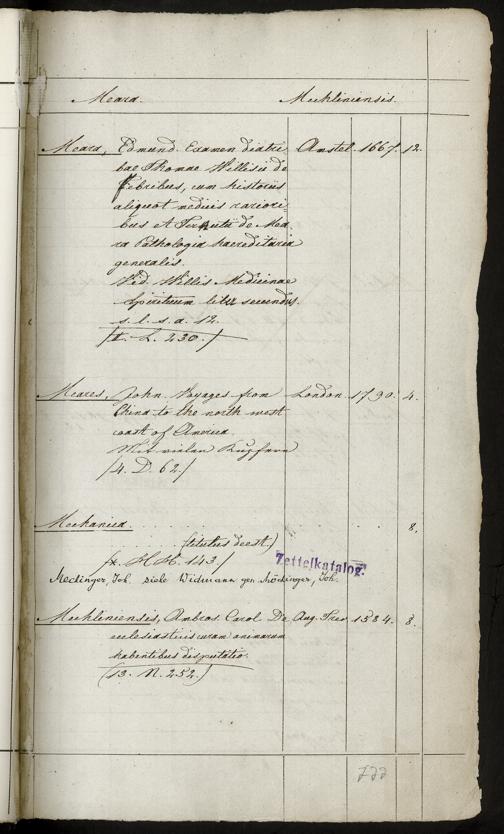 Meara. Mechliniensis.
Meara, Edmund. Examen diatri Amstel. 1667. 12.
bae Thomae Willisii de
Febribus, cum historiis
aliquot medicis rariori
bus et Dermutii de Mea
ra Pathologia haereditaria
generalis.
Vid. Willis Medicinae
Spirituum liber secundus.
s. l. s. a. 12.
/I. L. 230./
Meares, John. Voyages from London. 1790. 4.
China to the north west
coast of America.
Mit vielen Kupfern
/4. D. 62./
Mechanica. 8.
(titulus deest.)
/x. H H. 143/
Zettelkatalog.
Medinger, Joh. siehe Widmann gen. Mödinger, Joh.
Mechliniensis, Ambros. Carol. De Aug. Trev. 1584. 8.
ecclesiasticis curam animarum
habentibus disputatio.
(13. N. 252.)